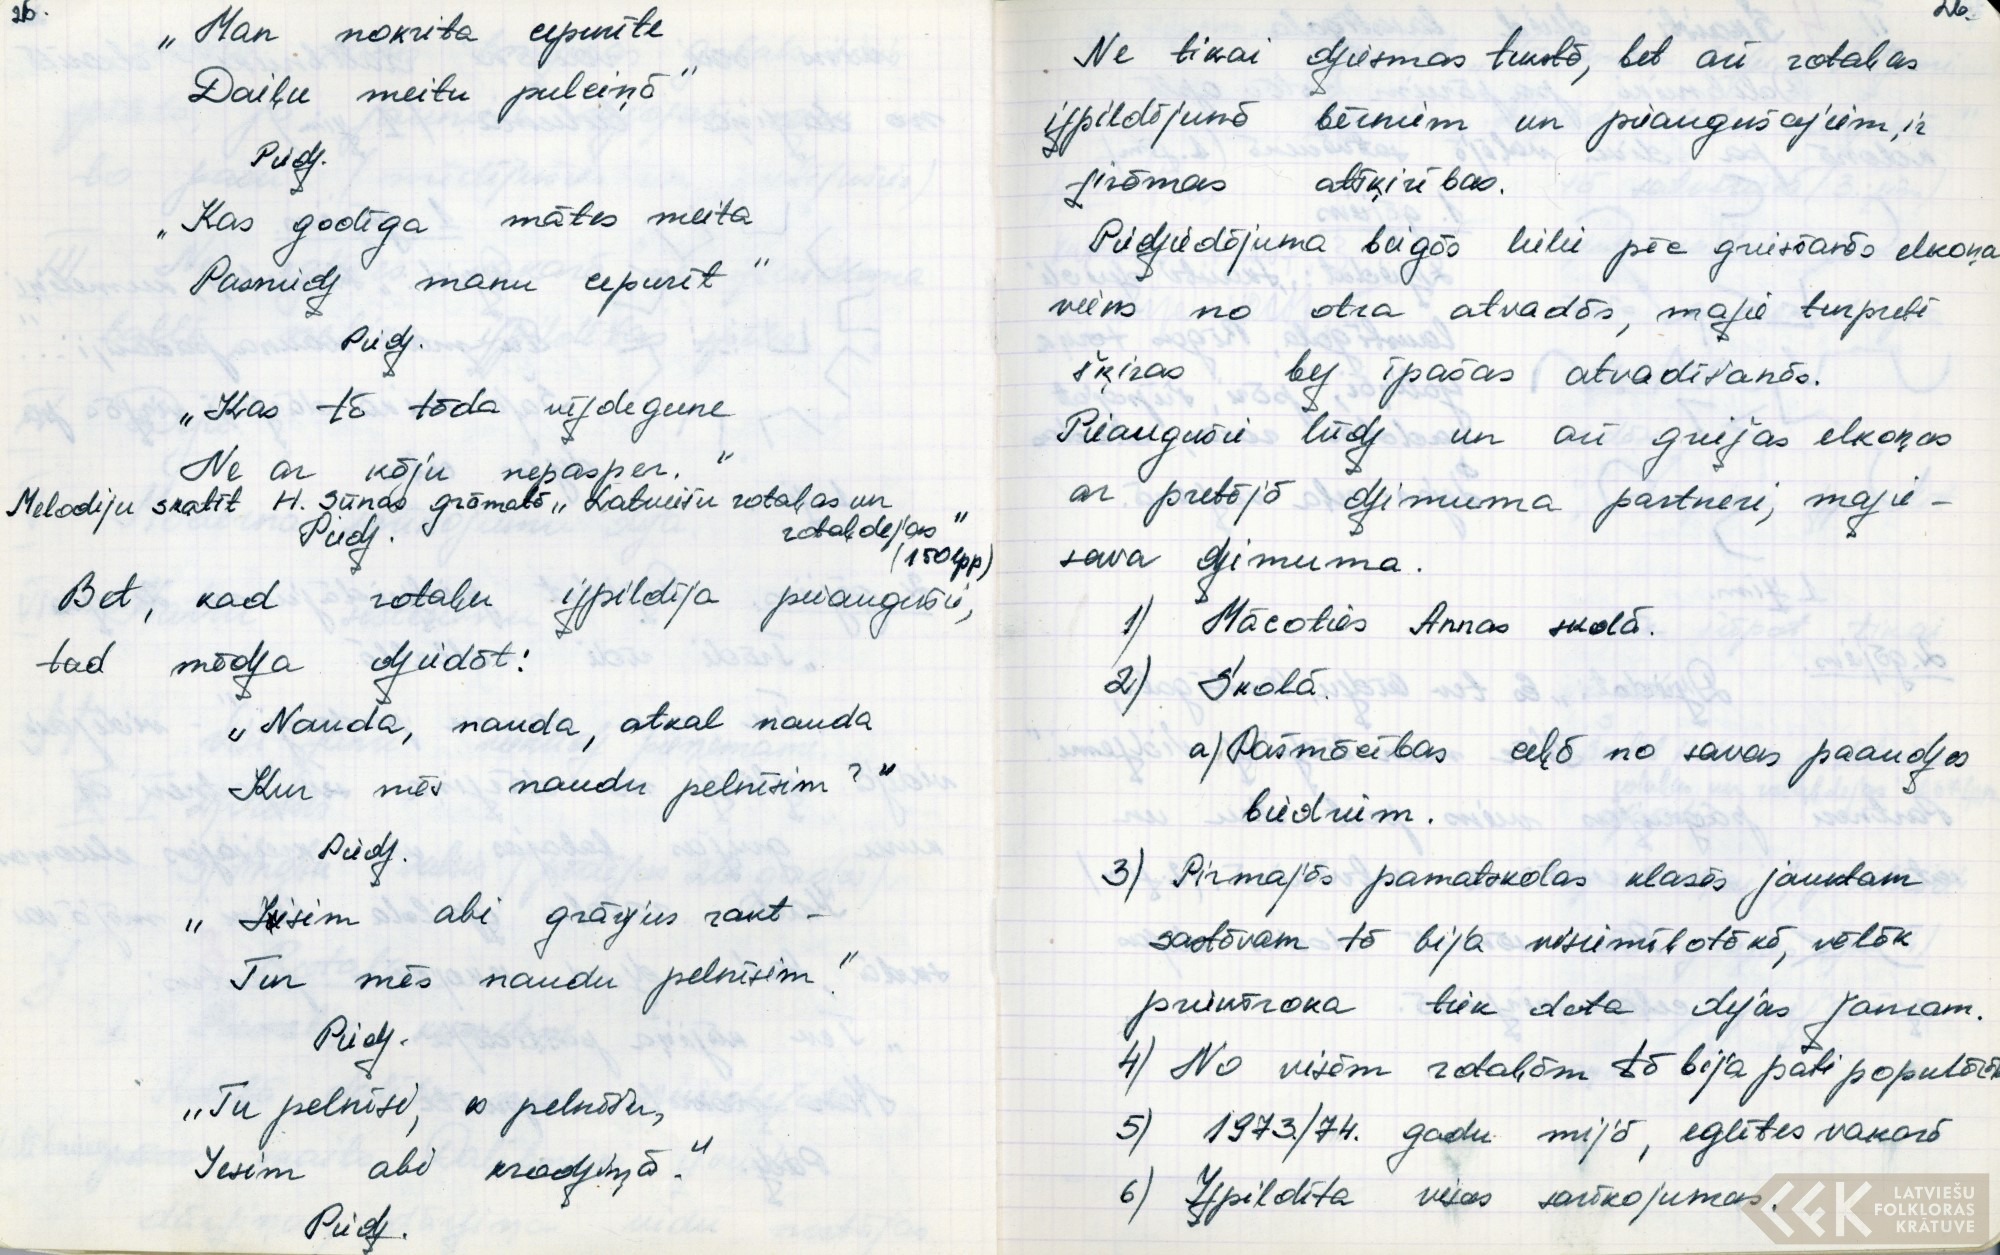 25.
„Man nokrita cepurīte
Daiļu meitu pulciņā"
Piedz.
„Kas godīga mātes meita
Pasniedz manu cepurīt"
Piedz.
„Kas tā tāda vīzdegune
Ne ar kāju nepasper."
Melodiju skatīt H. Sūnas grāmatā „Latviešu rotaļas un
rotaļdejas"
Piedz.
(150 lpp)
Bet, kad rotaļu izpildīja pieaugušie,
tad mēdza dziedāt:
„Nauda, nauda, atkal nauda
Kur mēs naudu pelnīsim?"
Piedz.
„Iesim abi grāvjus rakt –
Tur mēs naudu pelnīsim"
Piedz.
„Tu pelnīsi, es pelnīšu,
Iesim abi krodziņā."
Piedz.
26.
Ne tikai dziesmas tekstā, bet arī rotaļas
izpildījumā bērniem un pieaugušajiem, ir
jirāmas atšķirības.
Piedziedājuma beigās lielie pēc griešanās elkoņa
viens no otra atvadās, mazie turpreti
šķiras bez īpašas atvadīšanās.
Pieaugušie lūdz un arī griežas elkoņos
ar pretējā dzimuma partneri, mazie –
sava dzimuma.
1) Mācoties Annas skolā.
2) Skolā.
a) Pašmācības ceļā no savas paaudzes
biedriem.
3) Pirmajās pamatskolas klasēs jauktam
sastāvam tā bija visiemīļotākā, vēlāk
priekšroka tiek dota dejas žanram.
4) No visām rotaļām tā bija pati populārākā
5) 1973./74. gadu mijā, eglītes vakarā
6) Izpildīta visos sarīkojumos.
LATVIEŠU
FOLKLORAS
KRĀTUVE